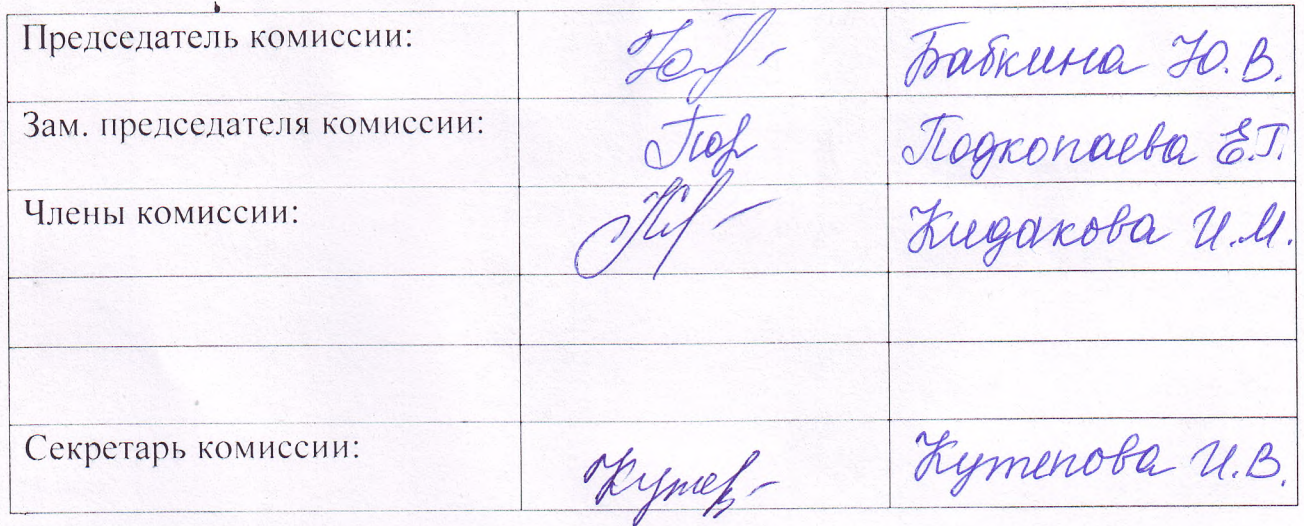 Председатель комиссии: Бабкина Ю.В.
Зам. председателя комиссии: Подкопаева Е.П.
Члены комиссии: Кидакова И.М.
Секретарь комиссии: Кутепова И.В.